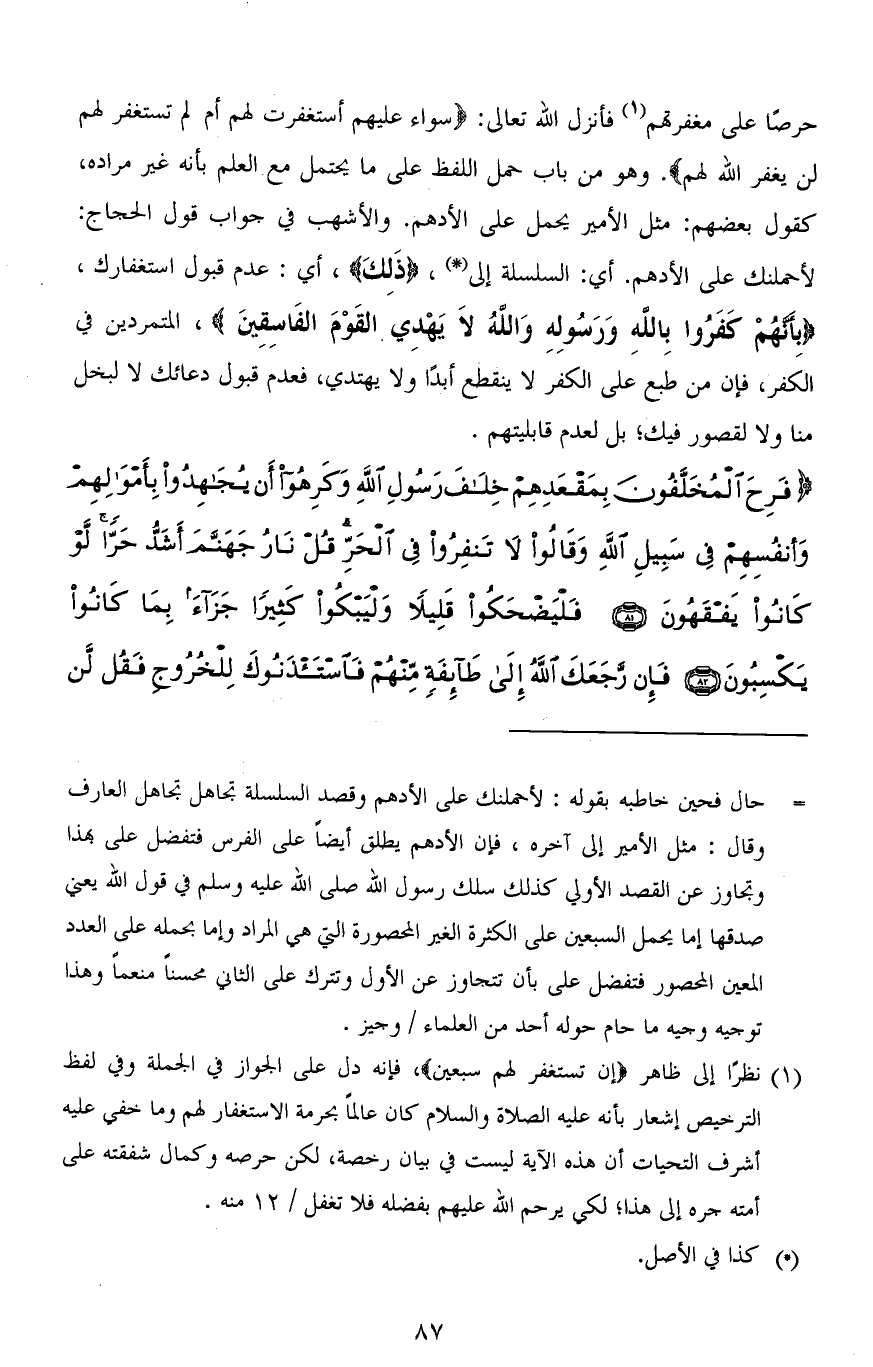 حرصًا على مغفرتهم(١) فأنزل الله تعالى: ﴿سواء عليهم أستغفرت لهم أم لم تستغفر لهم
لن يغفر الله لهم﴾. وهو من باب حمل اللفظ على ما يحتمل مع العلم بأنه غير مراده،
كقول بعضهم: مثل الأمير يحمل على الأدهم. والأشهب في جواب قول الحجاج:
لأحملنك على الأدهم. أي: السلسلة إلى(*) ، ﴿ذَلِكَ﴾ ، أي : عدم قبول استغفارك ،
﴿بِأَنَّهُمْ كَفَرُوا بِاللَّهِ وَرَسُولِهِ وَاللَّهُ لاَ يَهْدِي القَوْمَ الفَاسِقِينَ ﴾ ، المتمردين في
الكفر، فإن من طبع على الكفر لا ينقطع أبدًا ولا يهتدي، فعدم قبول دعائك لا لبخل
منا ولا لقصور فيك؛ بل لعدم قابليتهم .
﴿ فَرِحَ ٱلْمُخَلَّفُونَ بِمَقْعَدِهِمْ خِلَٰفَ رَسُولِ ٱللَّهِ وَكَرِهُوٓا۟ أَن يُجَٰهِدُوا۟ بِأَمْوَٰلِهِمْ
وَأَنفُسِهِمْ فِى سَبِيلِ ٱللَّهِ وَقَالُوا۟ لَا تَنفِرُوا۟ فِى ٱلْحَرِّ ۗ قُلْ نَارُ جَهَنَّمَ أَشَدُّ حَرًّا ۚ لَّوْ
كَانُوا۟ يَفْقَهُونَ ٨١ فَلْيَضْحَكُوا۟ قَلِيلًا وَلْيَبْكُوا۟ كَثِيرًا جَزَآءًۢ بِمَا كَانُوا۟
يَكْسِبُونَ ٨٢ فَإِن رَّجَعَكَ ٱللَّهُ إِلَىٰ طَآئِفَةٍ مِّنْهُمْ فَٱسْتَـْٔذَنُوكَ لِلْخُرُوجِ فَقُل لَّن
= حال فحين خاطبه بقوله : لأحملنك على الأدهم وقصد السلسلة تجاهل تجاهل العارف
وقال : مثل الأمير إلى آخره ، فإن الأدهم يطلق أيضاً على الفرس فتفضل على بهذا
وتجاوز عن القصد الأولي كذلك سلك رسول الله صلى الله عليه وسلم في قول الله يعني
صدقها إما يحمل السبعين على الكثرة الغير المحصورة التي هي المراد وإما بحمله على العدد
المعين المحصور فتفضل على بأن تتجاوز عن الأول وتترك على الثاني محسناً منعماً وهذا
توجيه وجيه ما حام حوله أحد من العلماء / وجيز .
(١) نظرًا إلى ظاهر ﴿إن تستغفر لهم سبعين﴾، فإنه دل على الجواز في الجملة وفي لفظ
الترخيص إشعار بأنه عليه الصلاة والسلام كان عالماً بحرمة الاستغفار لهم وما خفي عليه
أشرف التحيات أن هذه الآية ليست في بيان رخصة، لكن حرصه وكمال شفقته على
أمته جره إلى هذا؛ لكي يرحم الله عليهم بفضله فلا تغفل / ١٢ منه .
(*) كذا في الأصل.
٨٧